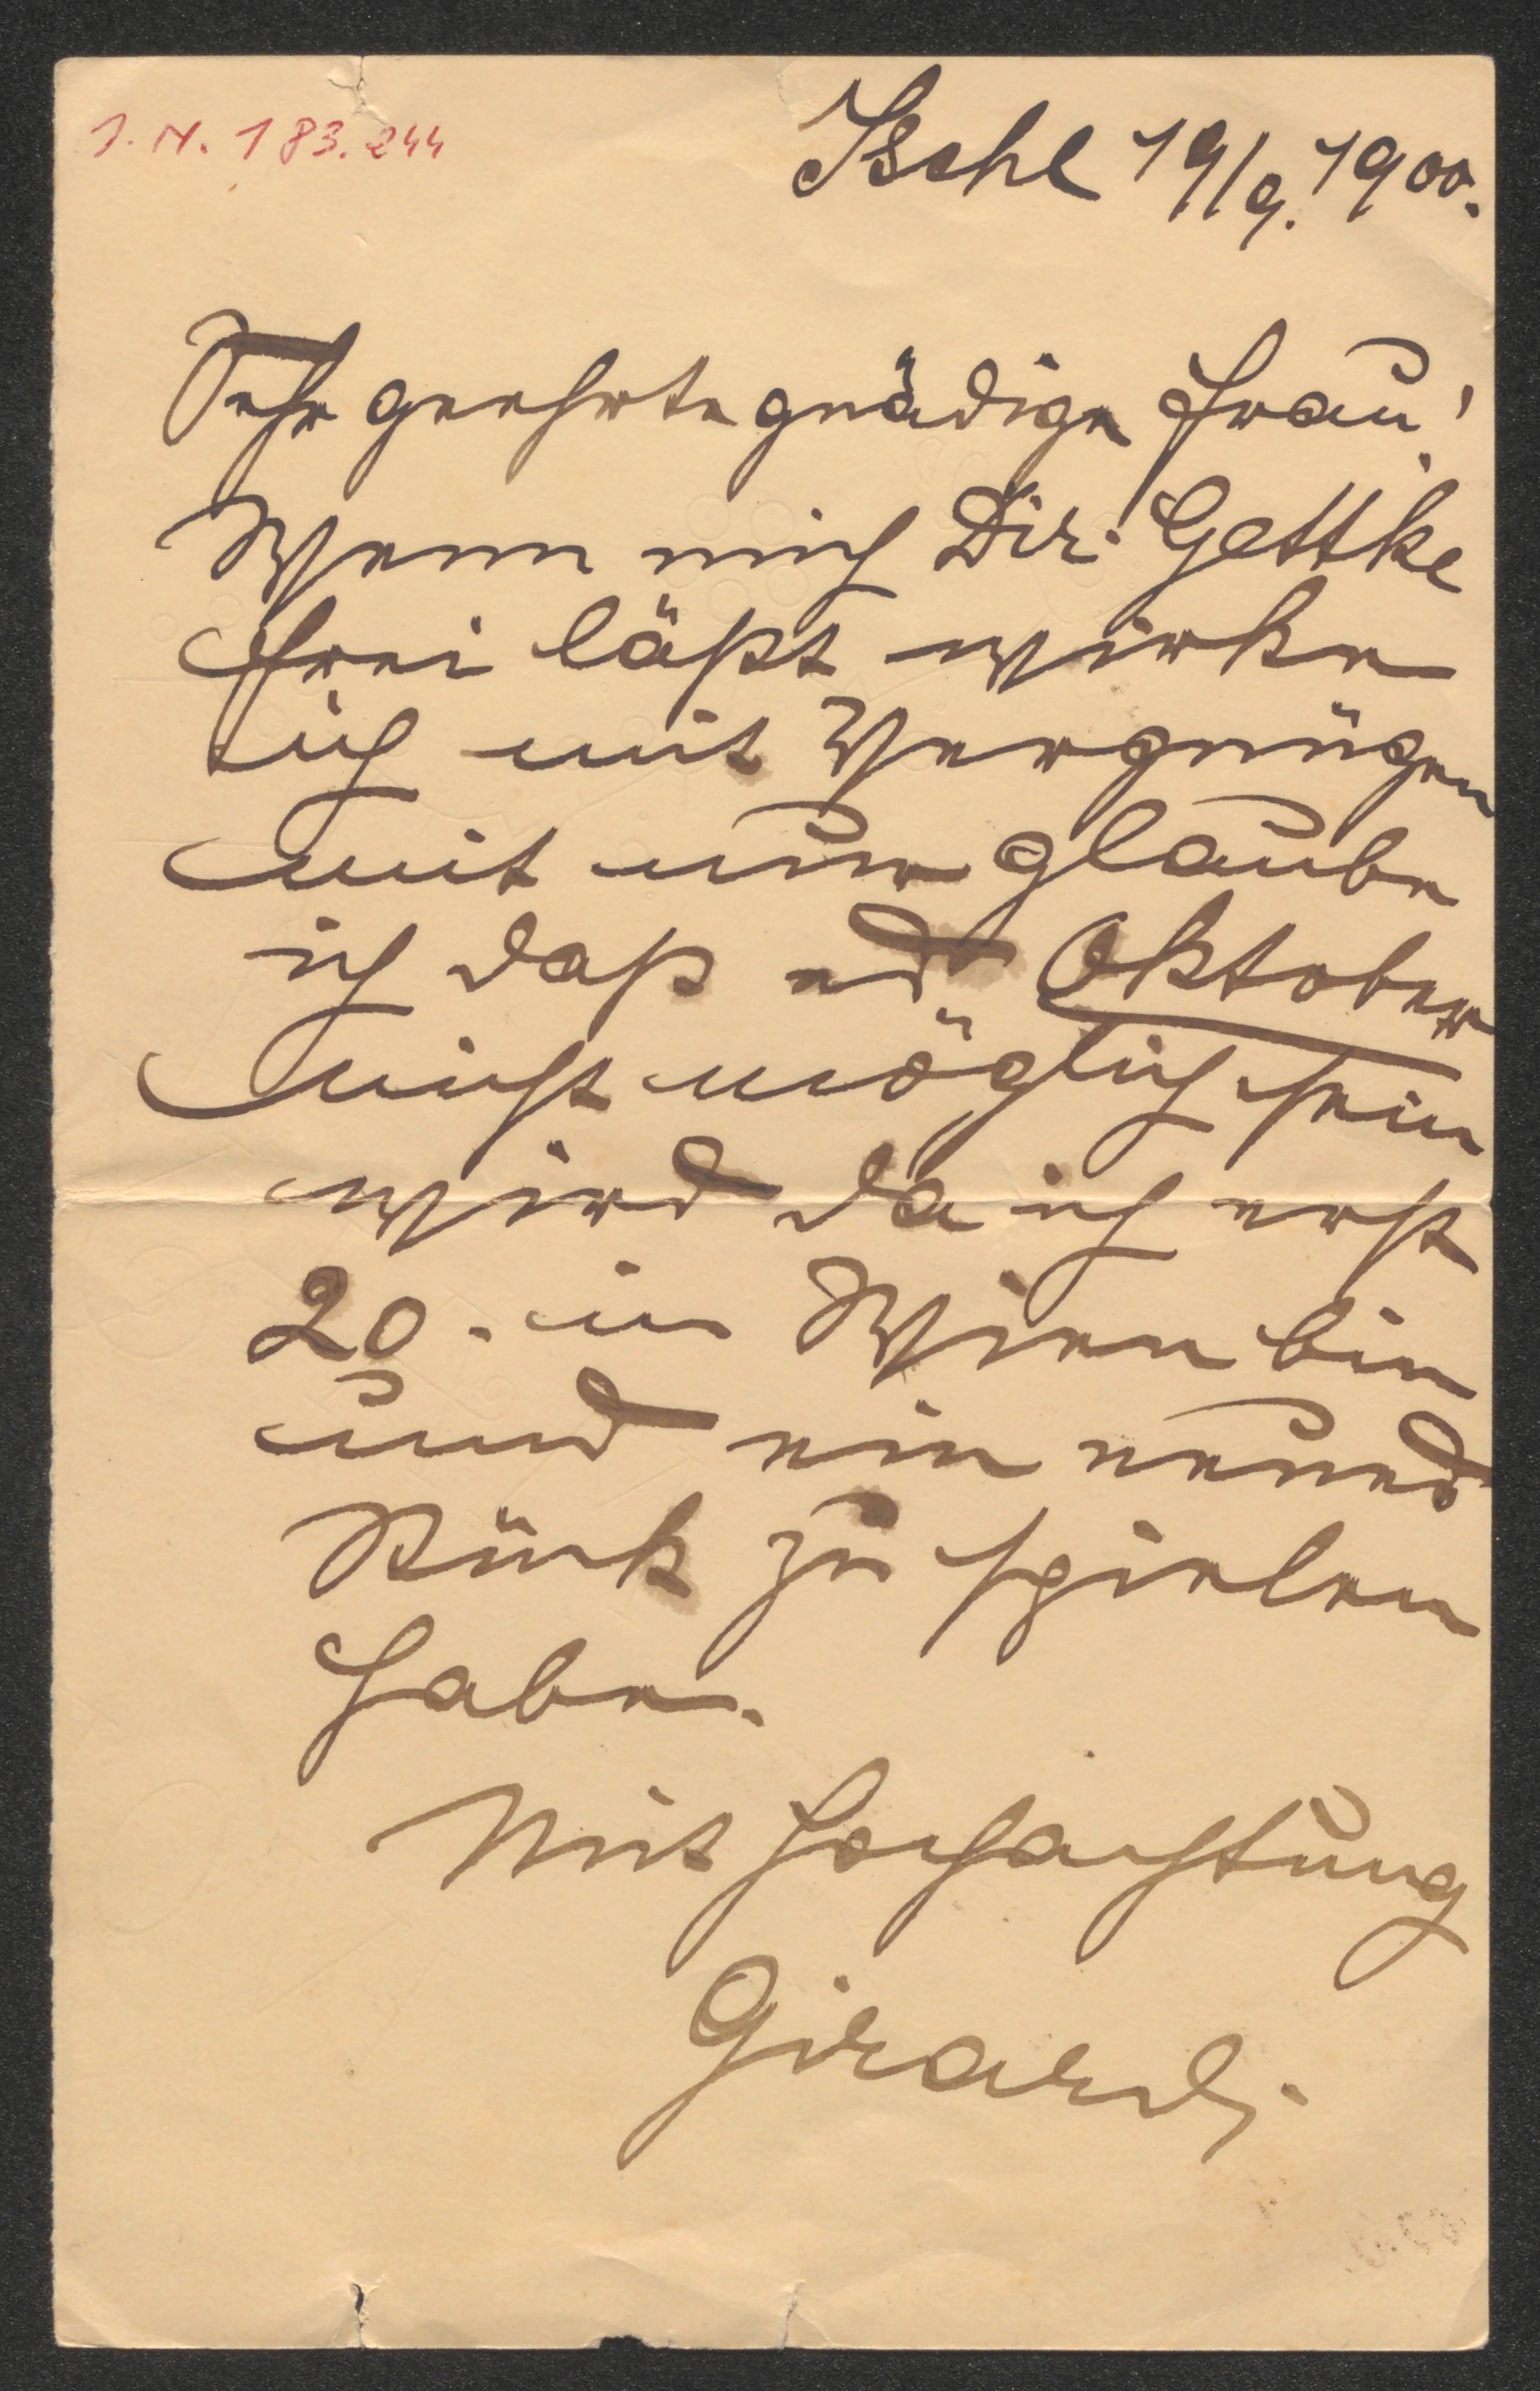 I. N. 183.244
Ischl 19/9. 1900.
Sehr geehrte gnädige Frau!
Wenn mich Dir. Gettke
frei läßt wirke
ich mit Vergnügen
mit nur glaube
ich daß es Oktober
nicht möglich sein
wird da ich erst
20. in Wien bin
und ein neues
Stück zu spielen
habe.
Mit Hochachtung
Girardi